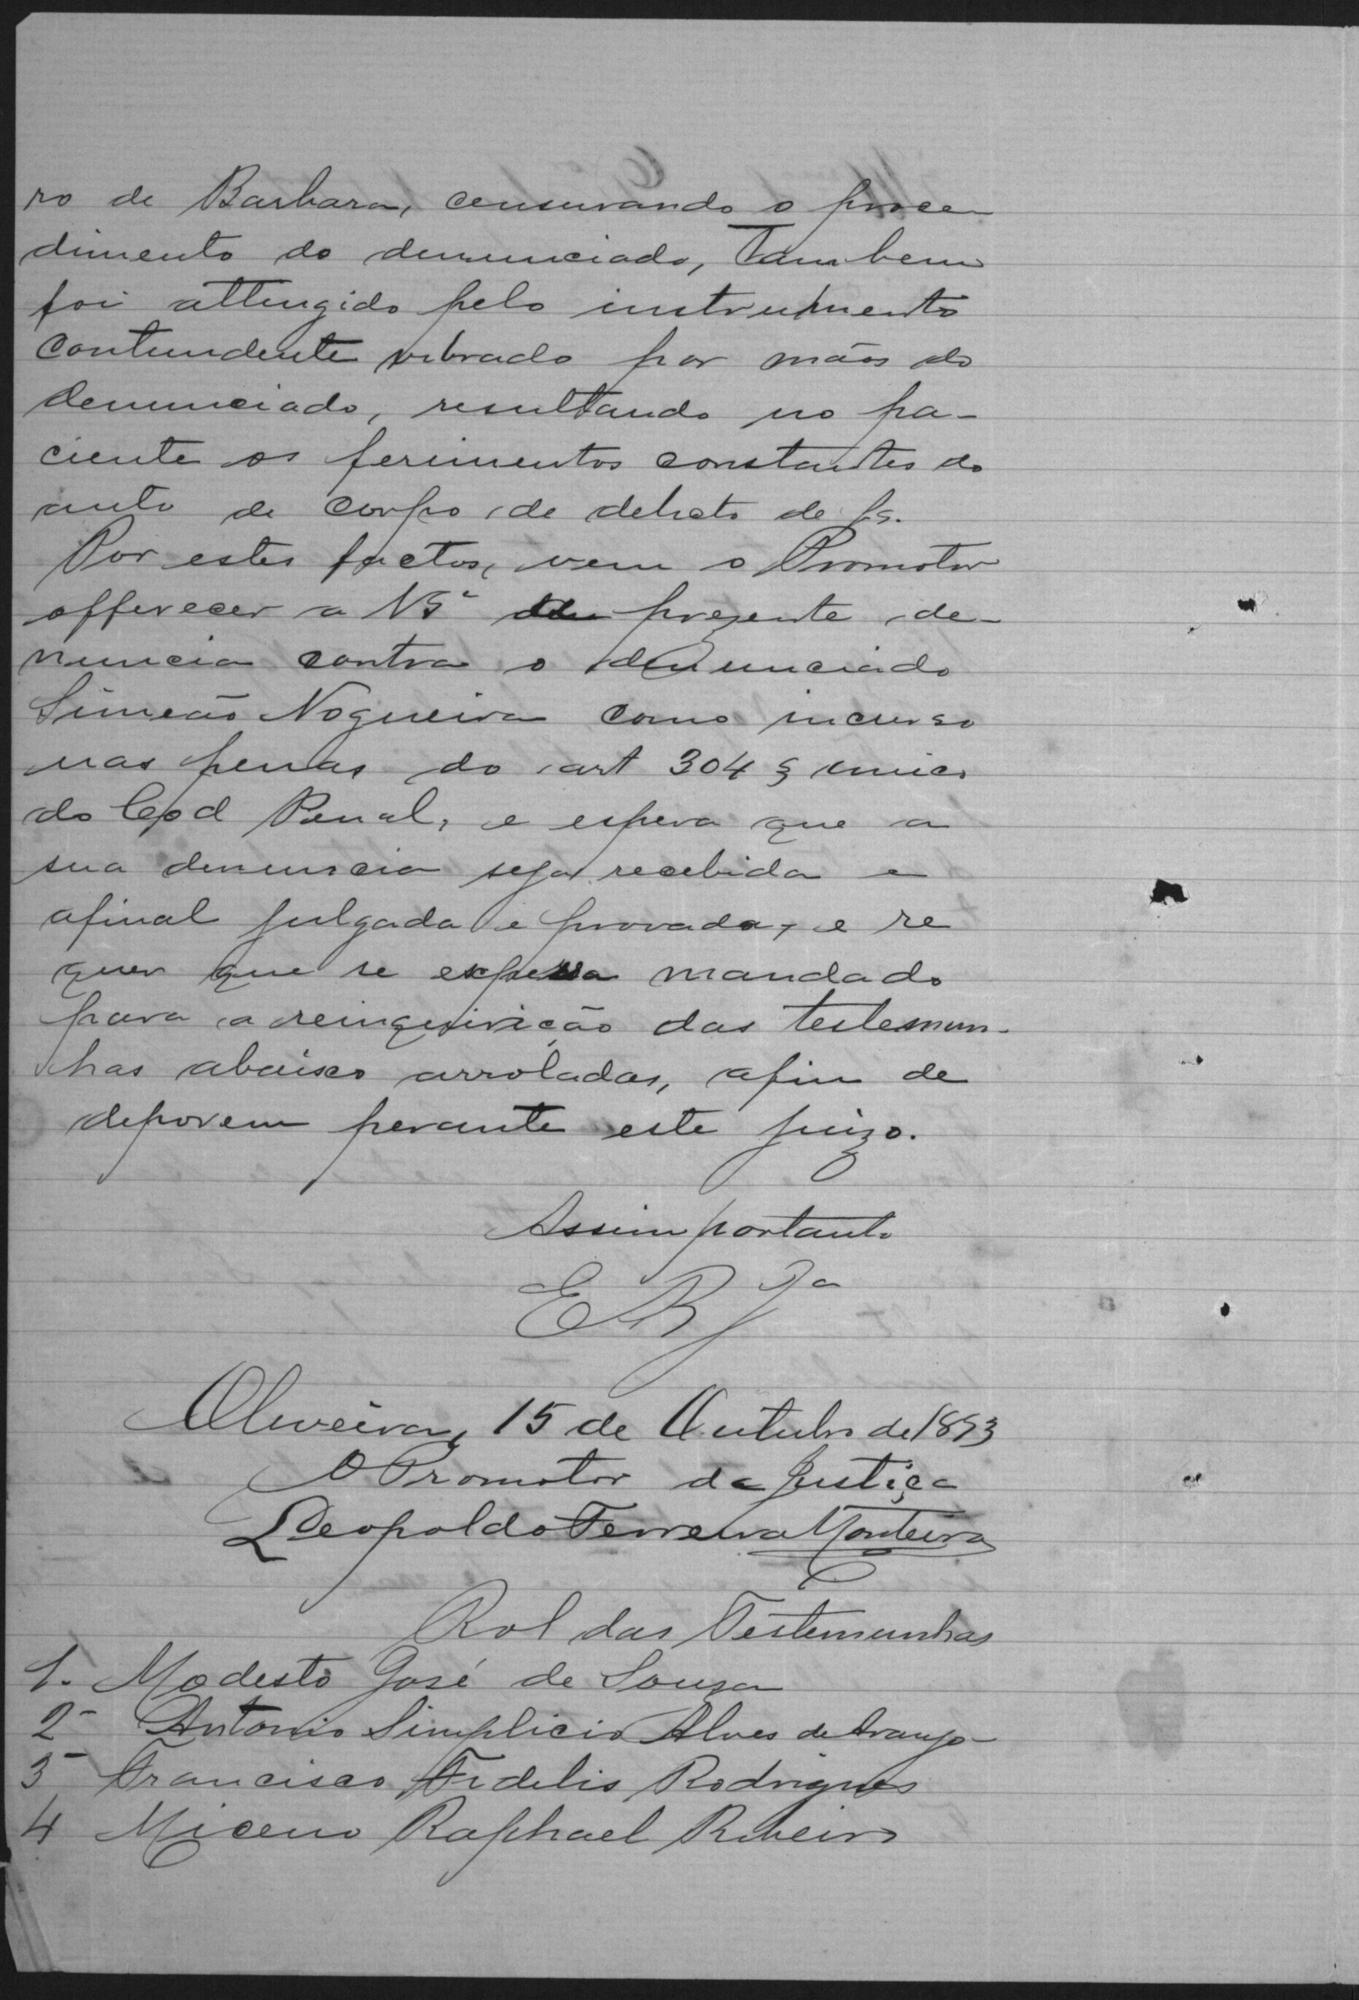 ro de Barbara, censurando o proce
dimento do denunciado, Tambem
foi attingido pelo instrumento
contundente vibrado por mãos do
denunciado, resultando no pa-
ciente os ferimentos constantes do
auto de corpo de delicto de fs.
Por estes factos, vem o Promotor
offerecer a VSª presente de-
nuncia contra o denunciado
Simeão Nogueira como incurso
nas penas do art 304 § unico
do Cod Penal, e espera que a
sua denuncia seja recebida e
afinal julgada e provada, e re
quer que se expessa mandado
para a reinquirição das testemun-
has abaixo arroladas, afim de
deporem perante este juizo.
Assim portanto
E R Jª
Oliveira, 15 de Outubro de 1893
O Promotor da Justiça
Leopoldo Ferreira Monteiro
Rol das Testemunhas
1- Modesto José de Souza
2- Antonio Simplicio Alves de Araujo-
3- Francisco Fidelis Rodrigues
4 Miceno Raphael Ribeiro